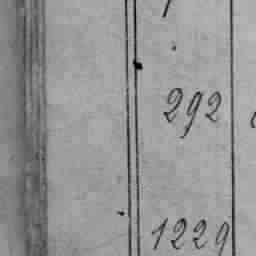 292
1229